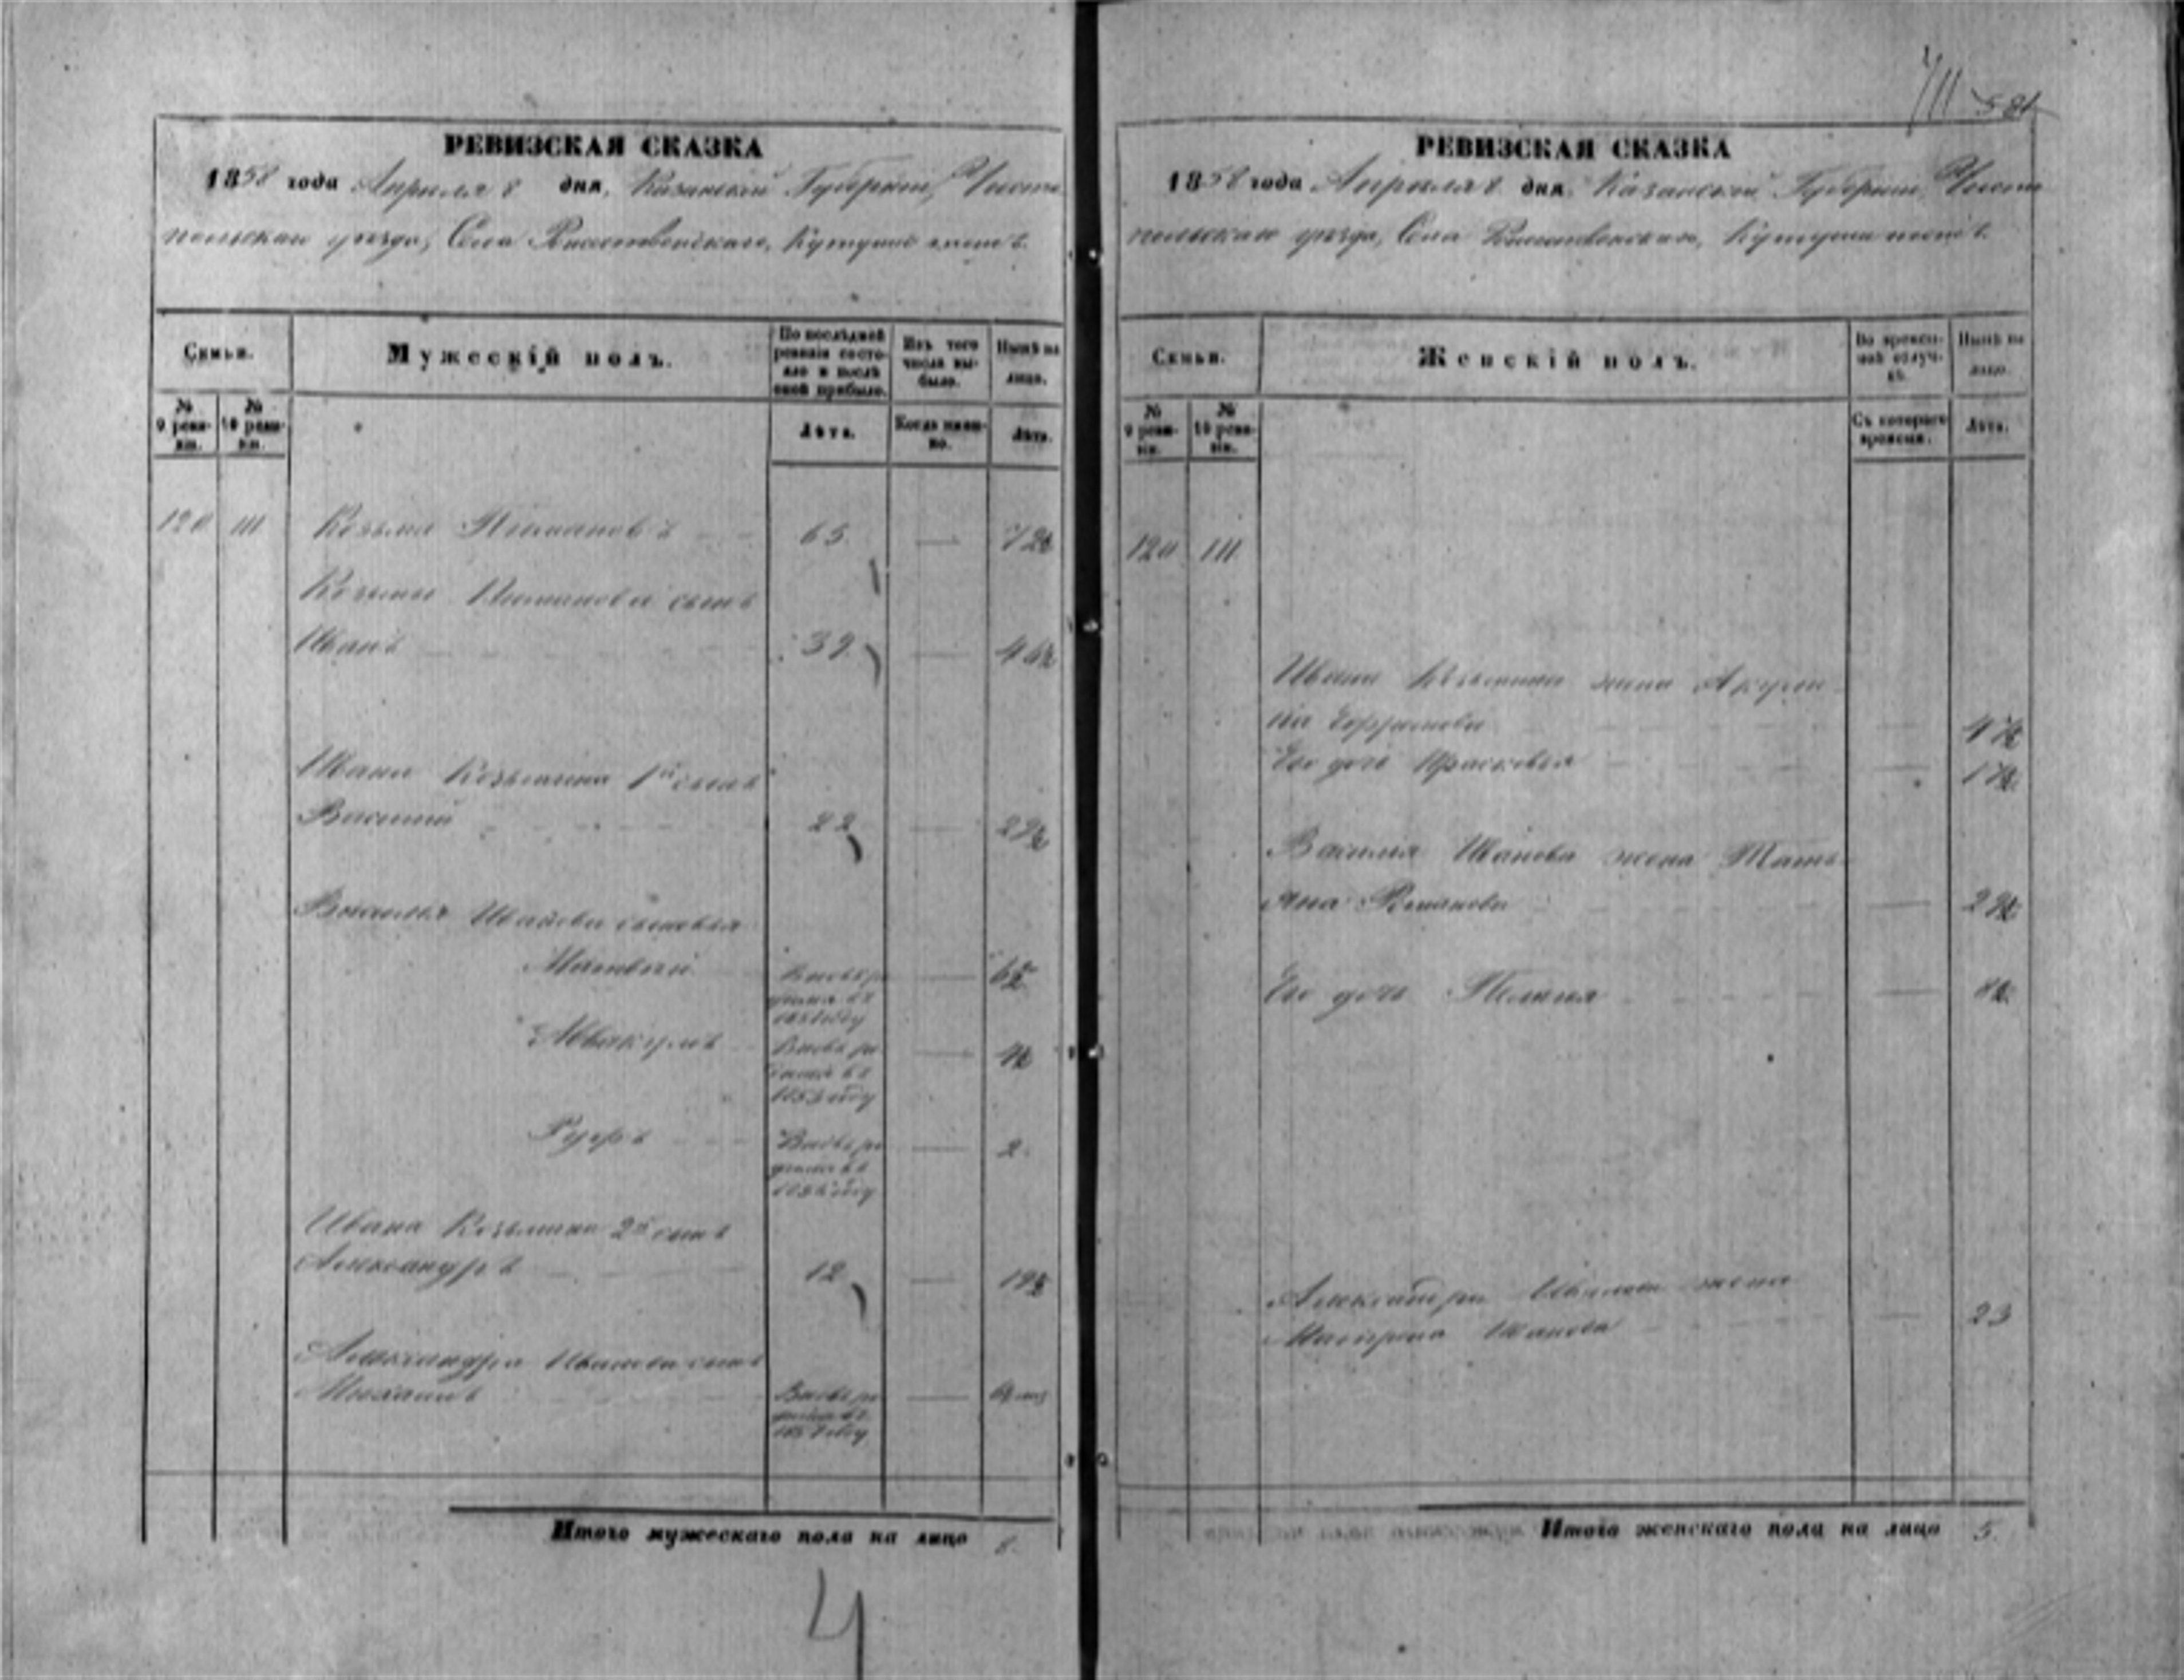 581
РЕВИЗСКАЯ СКАЗКА
1858 года Апреля 8 дня, Казанской Губернiи, Чисто
польскаго уѣзда, Села Рождественскаго, Кутуши тожъ.
Семьи.
Мужескiй полъ.
По послѣдней ревизiи состояло и послѣ оной прибыло.
Изъ того числа выбыло.
Нынѣ на лицо.
№ 9 ревизiи.
№ 10 ревизiи.
Лѣта.
Когда именно.
Лѣта.
120 111 Козьма 65 — 72½
Козьмы сынъ
Иванъ 39 — 46½
Ивана Козьмина 1й сынъ
Василiй 22 — 29½
Василья Иванова сыновья
Матвей Вновь рожденъ въ году — 6½
Аввакумъ Вновь рожденъ въ 1853 году — 4½
Вновь рожденъ въ 1856 году — 2.
Ивана Козьмина 2й сынъ
Александръ 12 — 19½
Александра Иванова сынъ
Михаилъ Вновь рожденъ въ 1857 году —
Итого мужескаго пола на лицо 8.
4
РЕВИЗСКАЯ СКАЗКА
1858 года Апреля 8 дня Казанской Губернiи, Чисто
польскаго уѣзда, Села Рождественскаго, Кутуши тожъ.
Семьи.
Женскiй полъ.
Во временной отлучкѣ.
Нынѣ на лицо.
№ 9 ревизiи.
№ 10 ревизiи.
Съ котораго времени.
Лѣта.
120 111
Ивана Козьмина жена Акули
на — 47½
Его дочь Прасковья — 17½
Василiя Иванова жена Тать
яна Романова — 29½
Его дочь —
Александра Иванова жена
Матрена Иванова — 23
Итого женскаго пола на лицо 5.